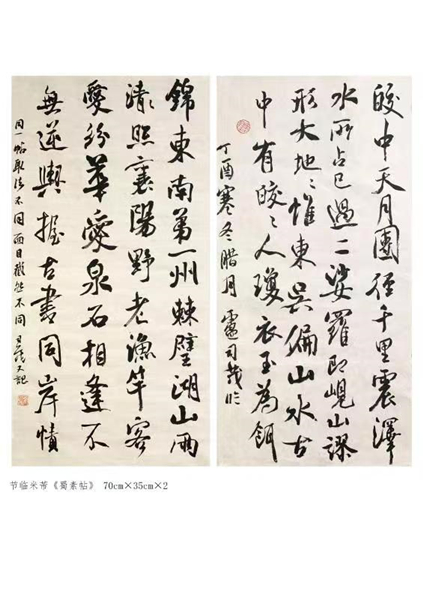 皎中天月團徑千里震澤
水所占已過二娑羅即峴山謬
形大地〻惟東吳偏山水古
中有皎〻人瓊衣玉為餌
丁酉寒冬腊月盧司哉於
錦東南第一州棘璧湖山兩
清照襄陽野老漁竿客
愛紛華愛泉石相逢不
無逆輿握古書同岸幘
同一帖取法不同面目不同又記
节临米芾《蜀素帖》 70cm×35cm×2